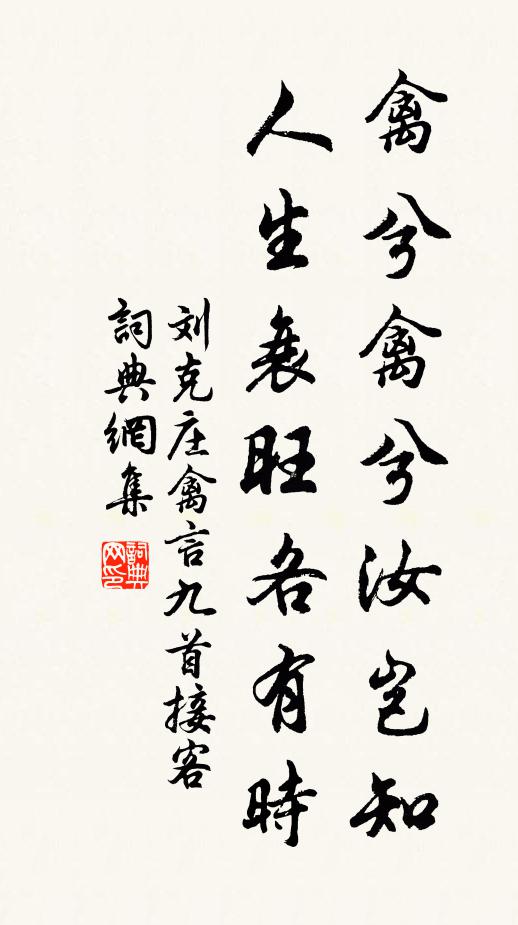 禽兮禽兮汝岂知
人生衰旺各有時
刘克庄禽言九首接客
詞典網集
詞典网印